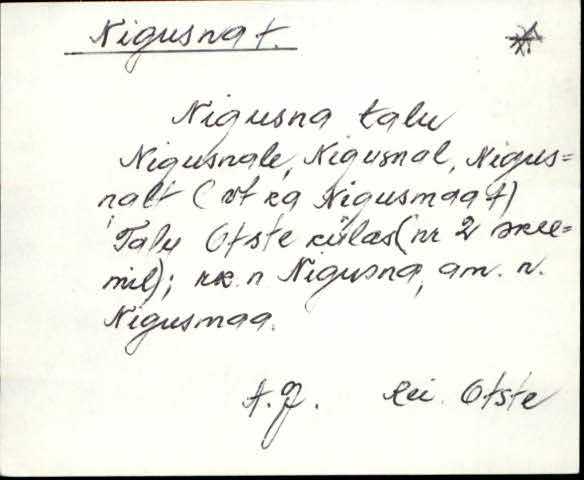 Nigusna t.
Nigusna talu
Nigusnale, Nigusnal, Nigus=
nalt (vt ka Nigusmaa t)
Talu Otste külas (nr 2 skee=
mil); rk. n Nigusna, am. n.
Nigusmaa.
t. J. Rei Otste